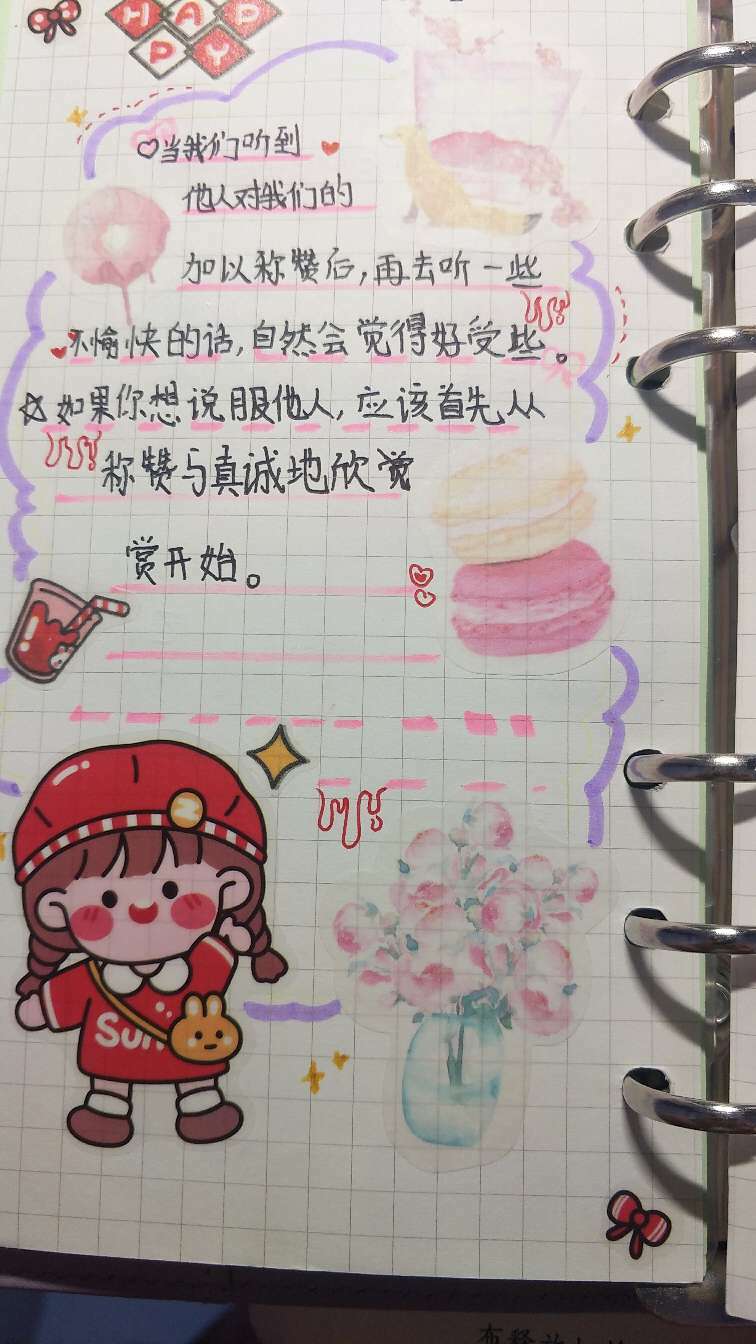 HAP
PY
当我们听到
他人对我们的
加以称赞后,再去听一些
不愉快的话,自然会觉得好受些。
☆如果你想说服他人,应该首先从
称赞与真诚地欣觉
赏开始。
Sun